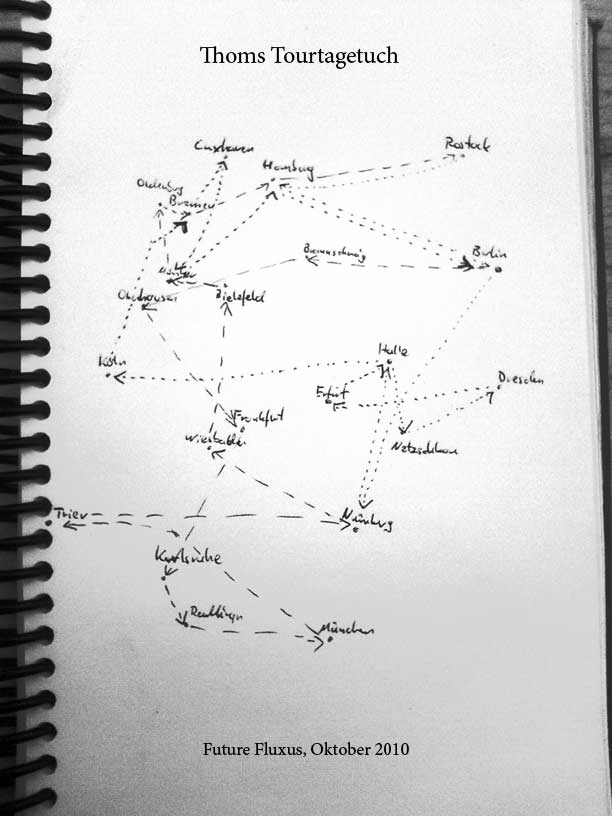 Thoms Tourtagetuch
Cuxhaven
Rostock
Hamburg
Oldenburg
Bremen
Braunschweig
Berlin
Münster
Oberhausen
Bielefeld
Halle
Köln
Erfurt
Dresden
Frankfurt
Wiesbaden
Trier
Nürnberg
Karlsruhe
Reutlingen
München
Future Fluxus, Oktober 2010